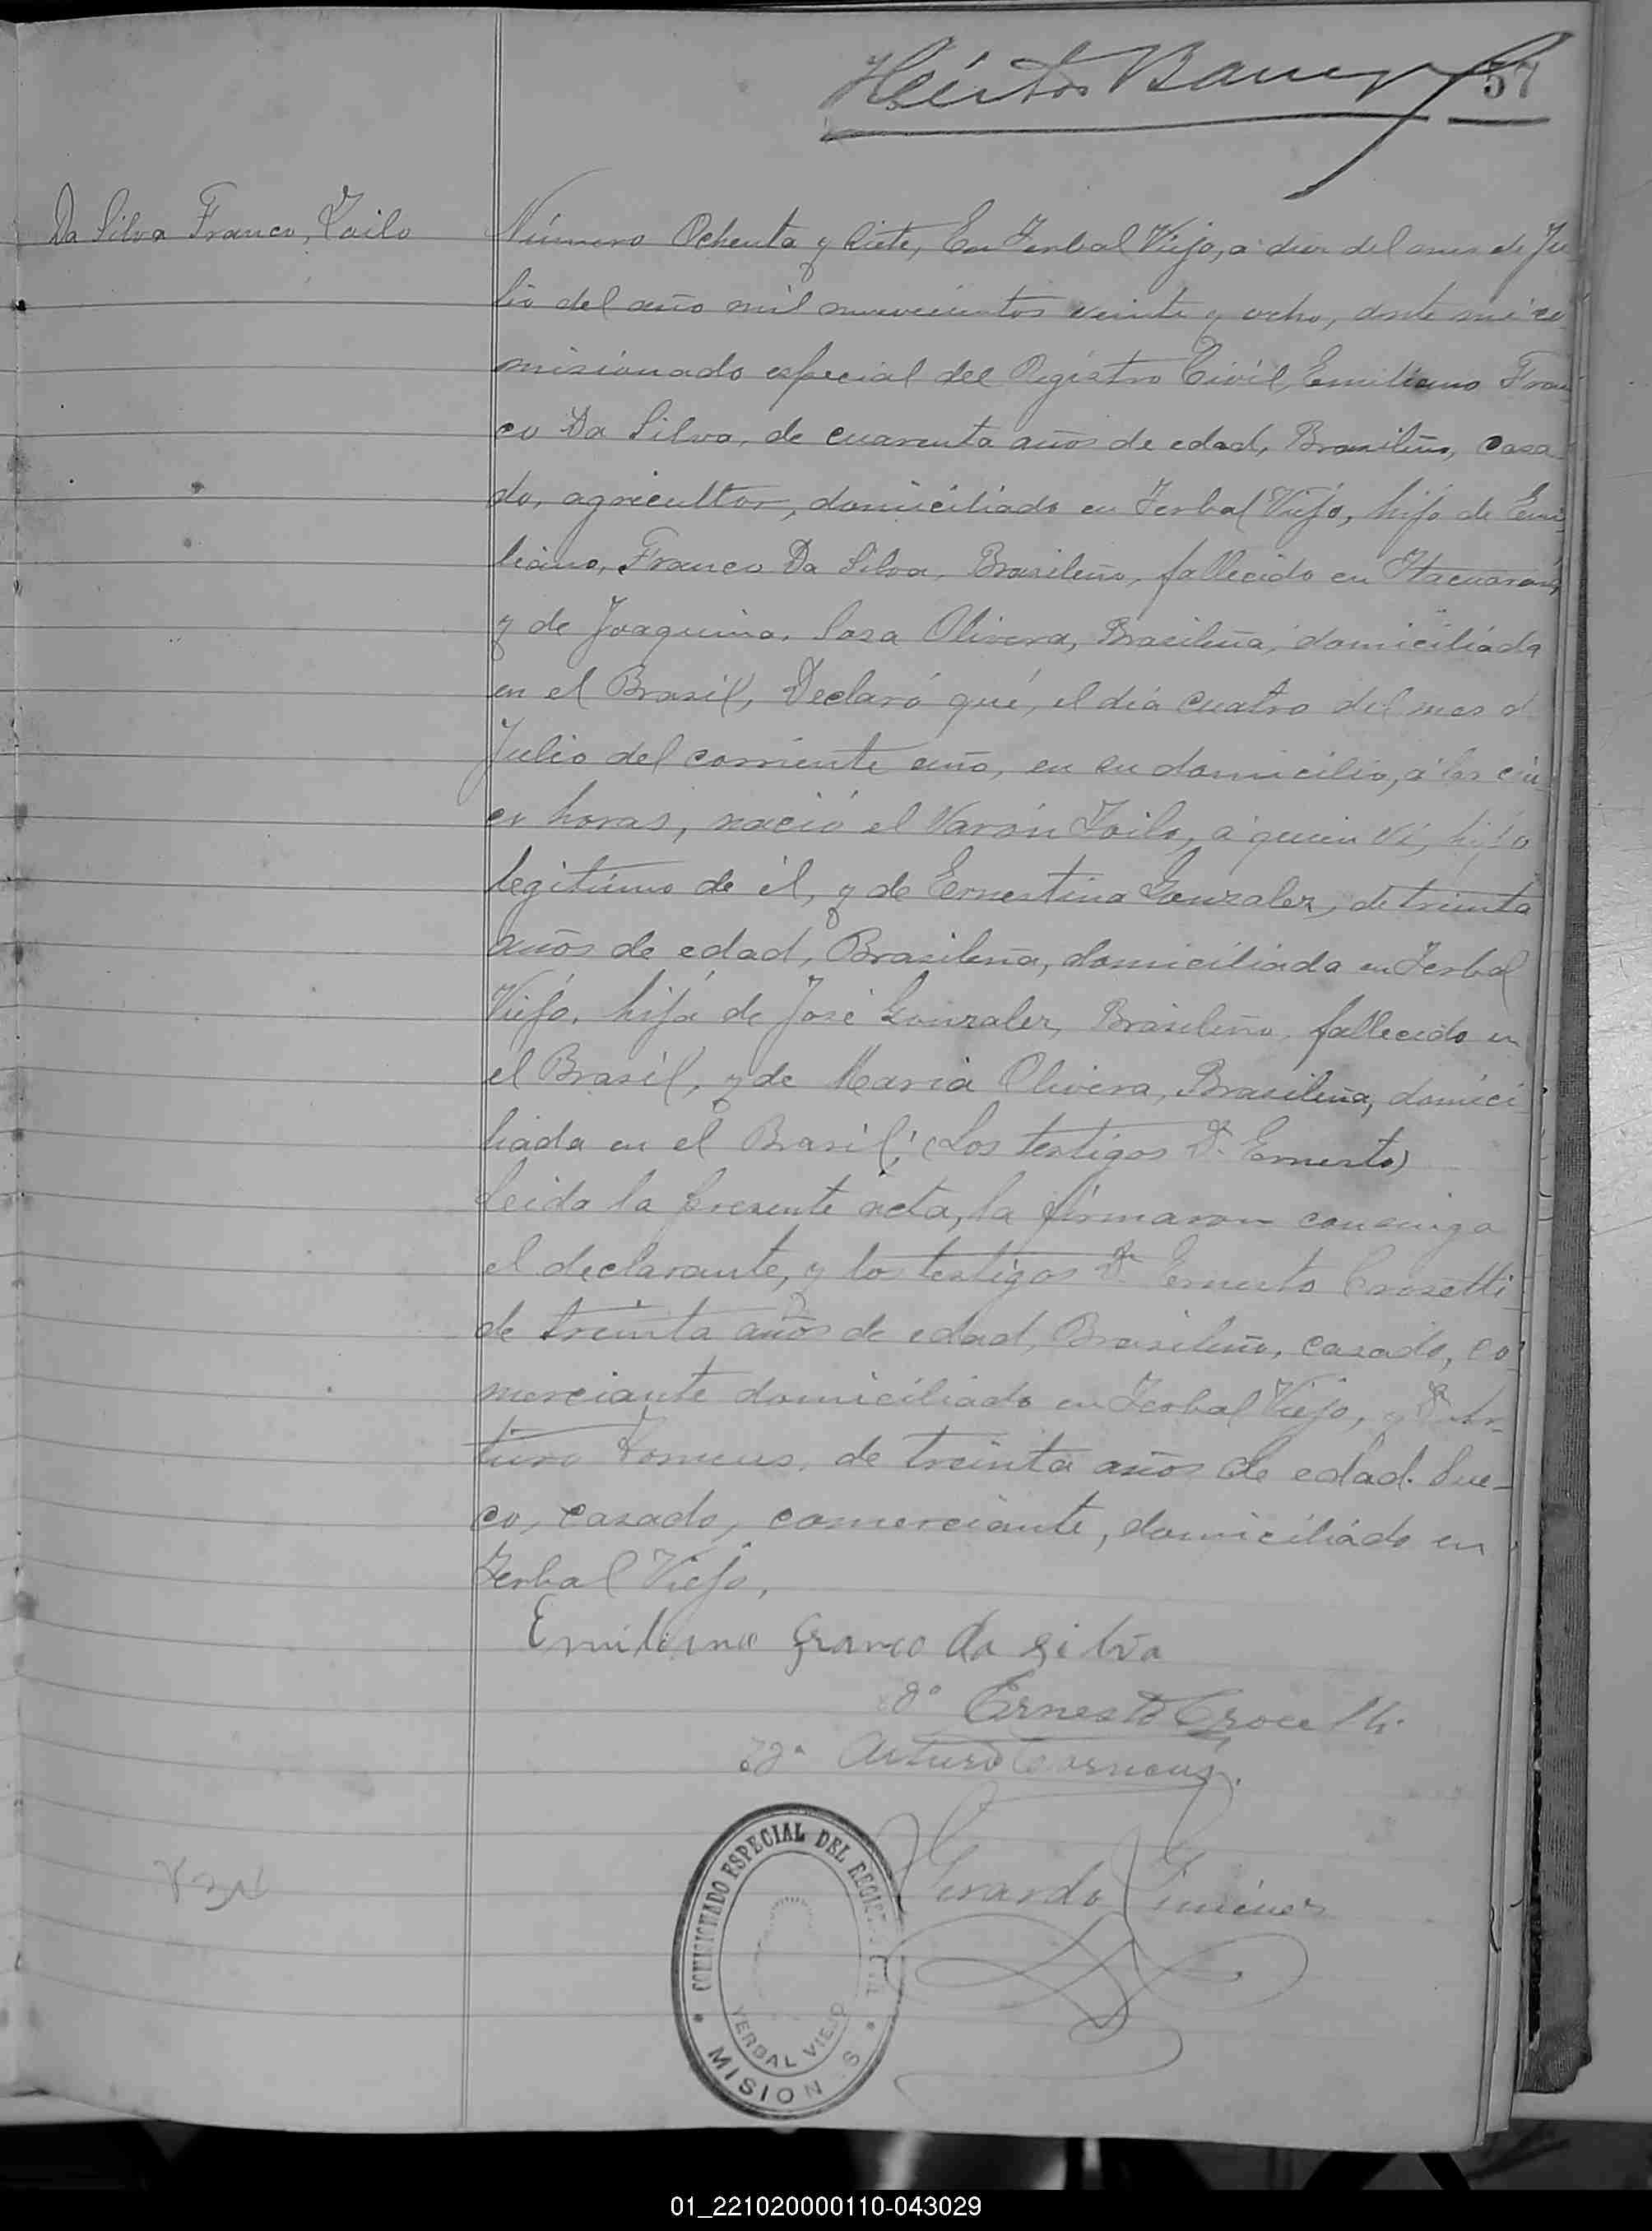 Héctor Barreyro
57
Da Silva Franco, Zoilo
Número Ochenta y Siete, En Yerbal Viejo, a diez del mes de Ju
lio del año mil novecientos veinte y ocho, ante mí co
misionado especial del Registro Civil, Emiliano Fran
co Da Silva, de cuarenta años de edad, Brasileño, casa
do, agricultor, domiciliado en Yerbal Viejo, hijo de Emi
liano, Franco Da Silva, Brasileño, fallecido en Itacuararé,
y de Joaquina, Sosa Olivera, Brasileña, domiciliada
en el Brasil, Declaró qué, el día cuatro del mes d
Julio del corriente año, en su domicilio, á las cin
co horas, nació el Varón Zoilo, a quien ví, hijo
legítimo de él, y de Ernestina Gonzalez, de treinta
años de edad, Brasileña, domiciliada en Yerbal
Viejo, hija de José Gonzalez, Brasileño, fallecido en
el Brasil, y de María Olivera, Brasileña, domici
liada en el Brasil; (Los testigos Dn. Ernesto)
Leida la presente acta, la firmaron conmigo
el declarante, y los testigos Dn. Ernesto Crosetti
de treinta años de edad, Brasileño, casado, co
merciante domiciliado en Yerbal Viejo, y Dn Ar-
turo de treinta años de edad. Sue-
co, casado, comerciante, domiciliado en
Yerbal Viejo,
Emiliano Franco da Silva
Ernesto
Arturo
Gerardo Giménez
COMISIONADO ESPECIAL DEL REGIST CIVIL
YERBAL VIEJO
MISION S
01_221020000110-043029